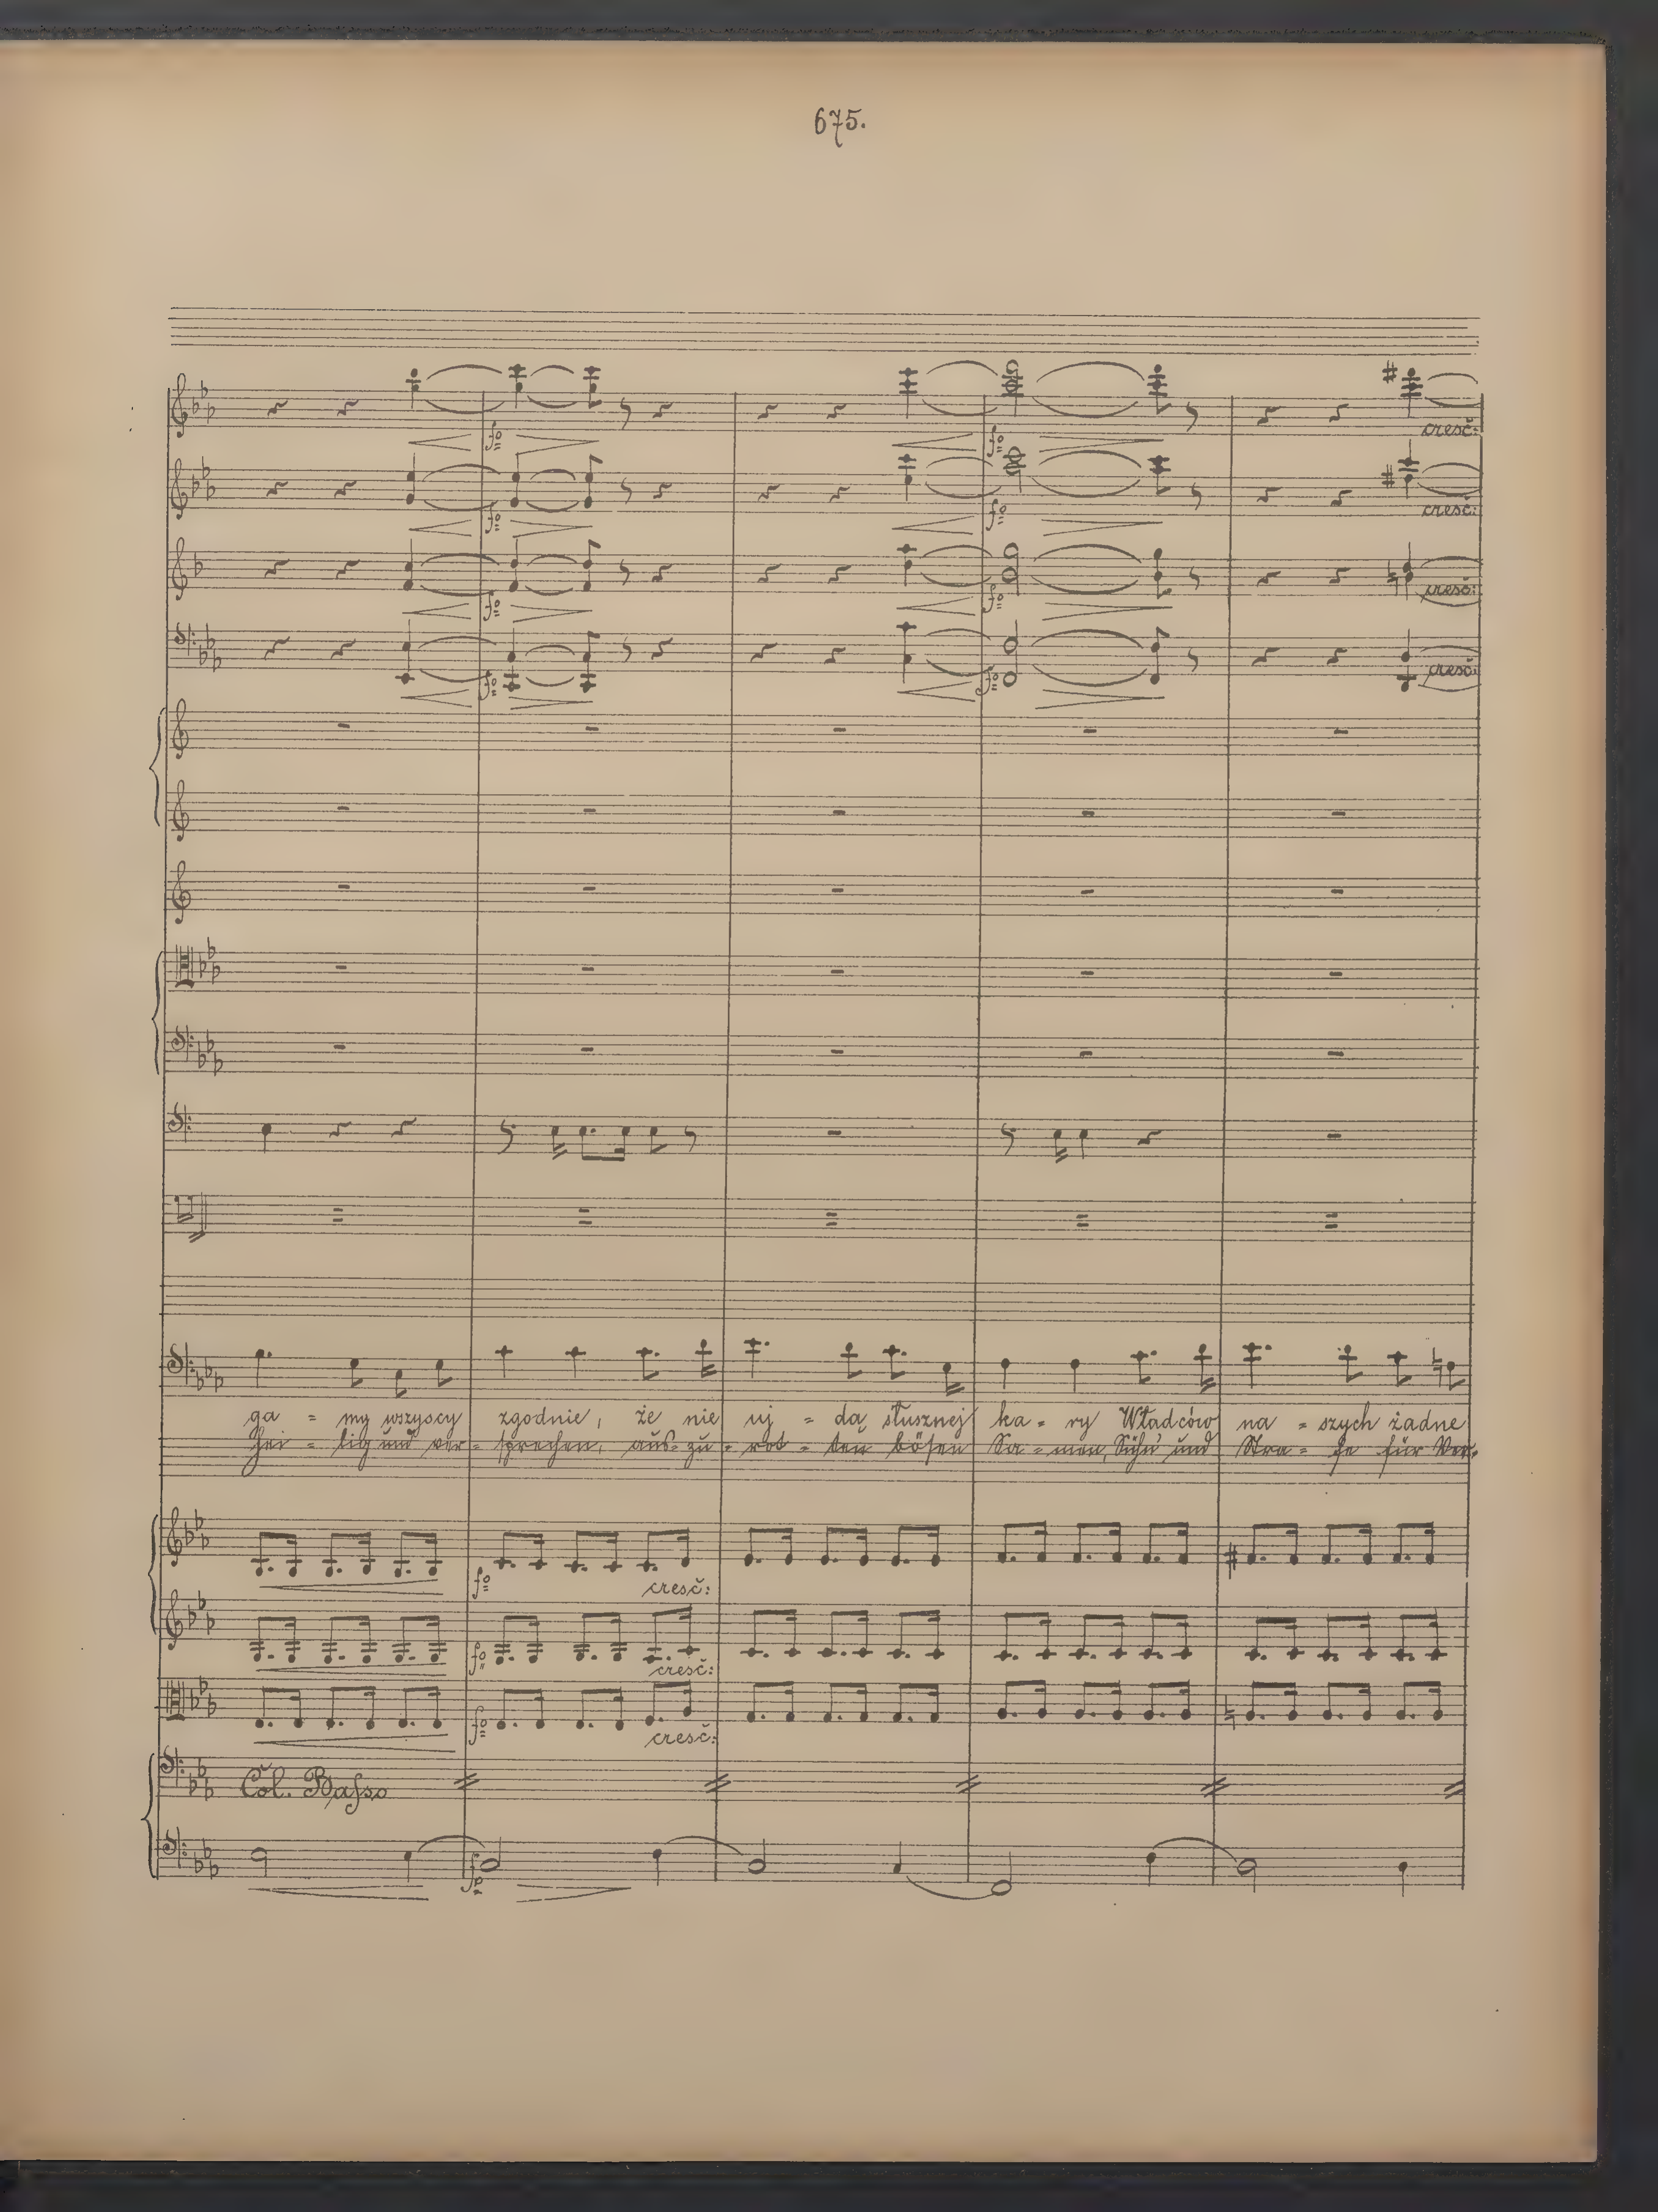 675.
cresč:
fo fo
cresč:
fo fo
cresč:
fo fo
cresč:
fo fo
ga = my wszyscy zgodnie, że nie uj = dą słusznej ka = ry Władców na = szych żadne
hei = lig und ver = sprechen, aus = zu = rot = ten bösen Sa = men, Sühn' und Stra = fe für Ver=
fo cresč:
fo cresč:
fo cresč:
Čol. Basso
fp